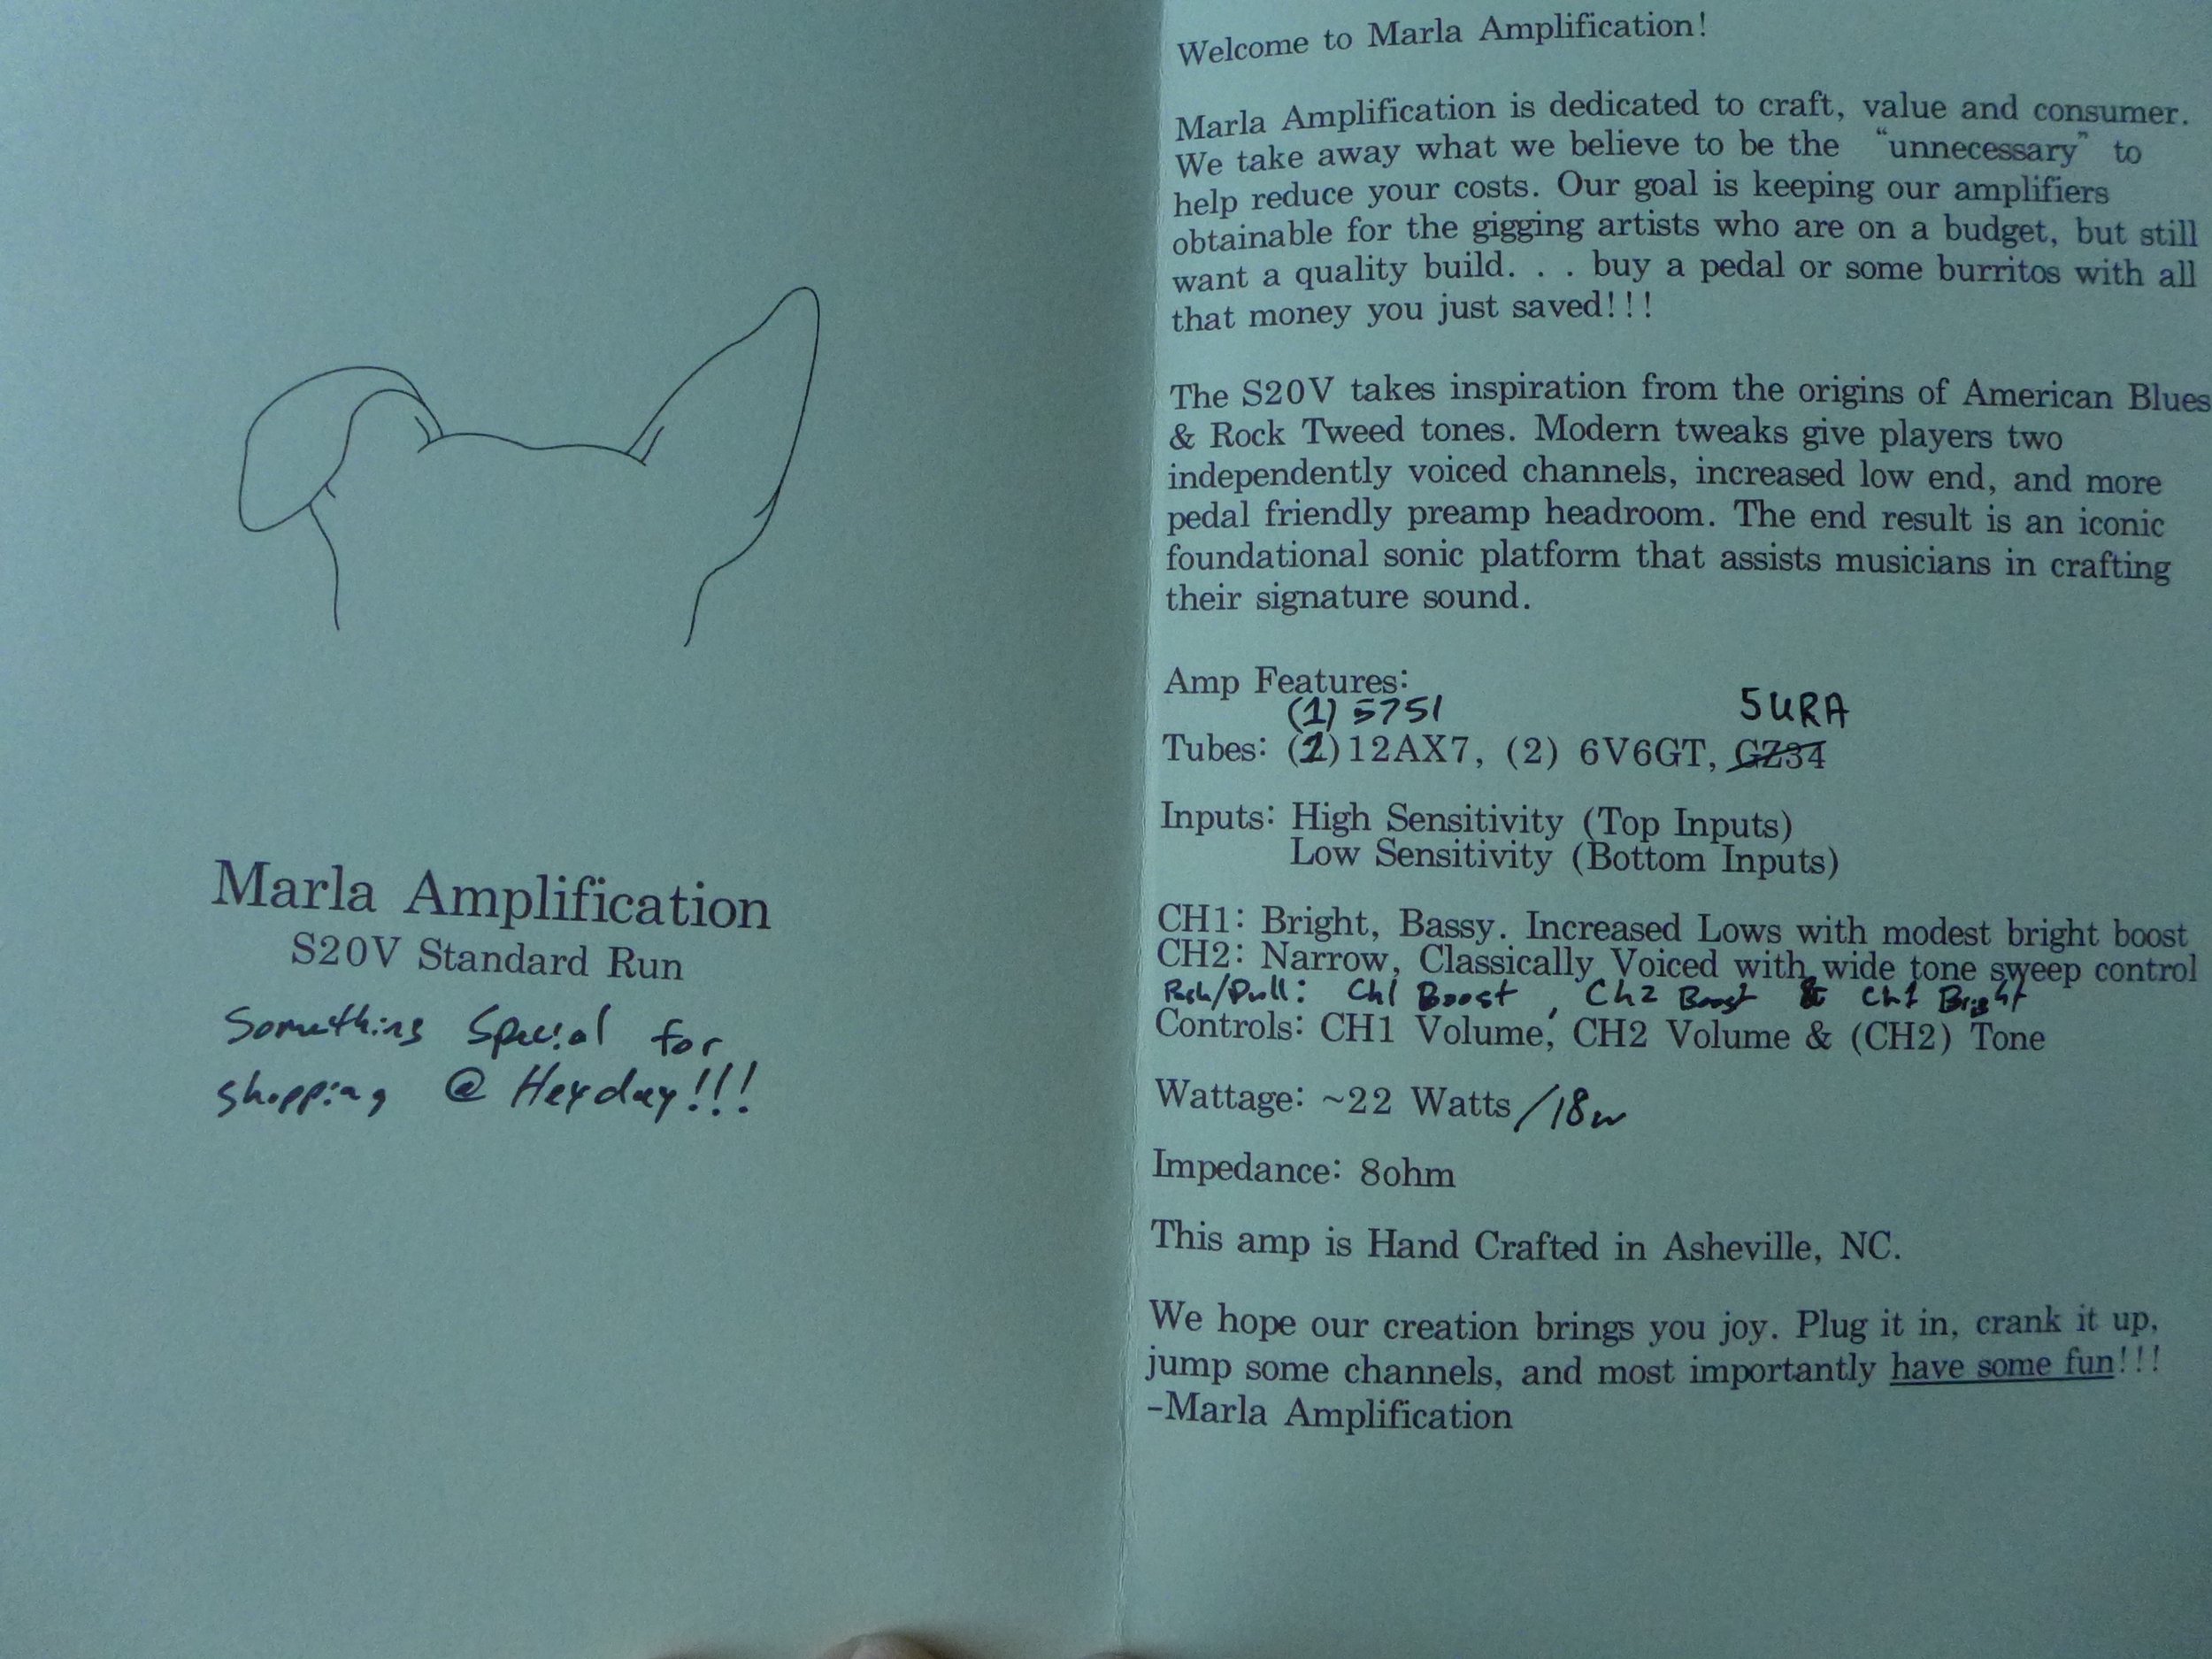 Marla Amplification
S20V Standard Run
Something Special for
shopping @ Heyday!!!
Welcome to Marla Amplification!
Marla Amplification is dedicated to craft, value and consumer.
We take away what we believe to be the “unnecessary” to
help reduce your costs. Our goal is keeping our amplifiers
obtainable for the gigging artists who are on a budget, but still
want a quality build. . . buy a pedal or some burritos with all
that money you just saved!!!
The S20V takes inspiration from the origins of American Blues
& Rock Tweed tones. Modern tweaks give players two
independently voiced channels, increased low end, and more
pedal friendly preamp headroom. The end result is an iconic
foundational sonic platform that assists musicians in crafting
their signature sound.
Amp Features:
(1) 5751 5URA
Tubes: (1)12AX7, (2) 6V6GT, GZ34
Inputs: High Sensitivity (Top Inputs)
Low Sensitivity (Bottom Inputs)
CH1: Bright, Bassy. Increased Lows with modest bright boost
CH2: Narrow, Classically Voiced with wide tone sweep control
Push/Pull: Ch1 Boost, Ch2 Boost & Ch1 Bright
Controls: CH1 Volume, CH2 Volume & (CH2) Tone
Wattage: ~22 Watts/18w
Impedance: 8ohm
This amp is Hand Crafted in Asheville, NC.
We hope our creation brings you joy. Plug it in, crank it up,
jump some channels, and most importantly have some fun!!!
-Marla Amplification